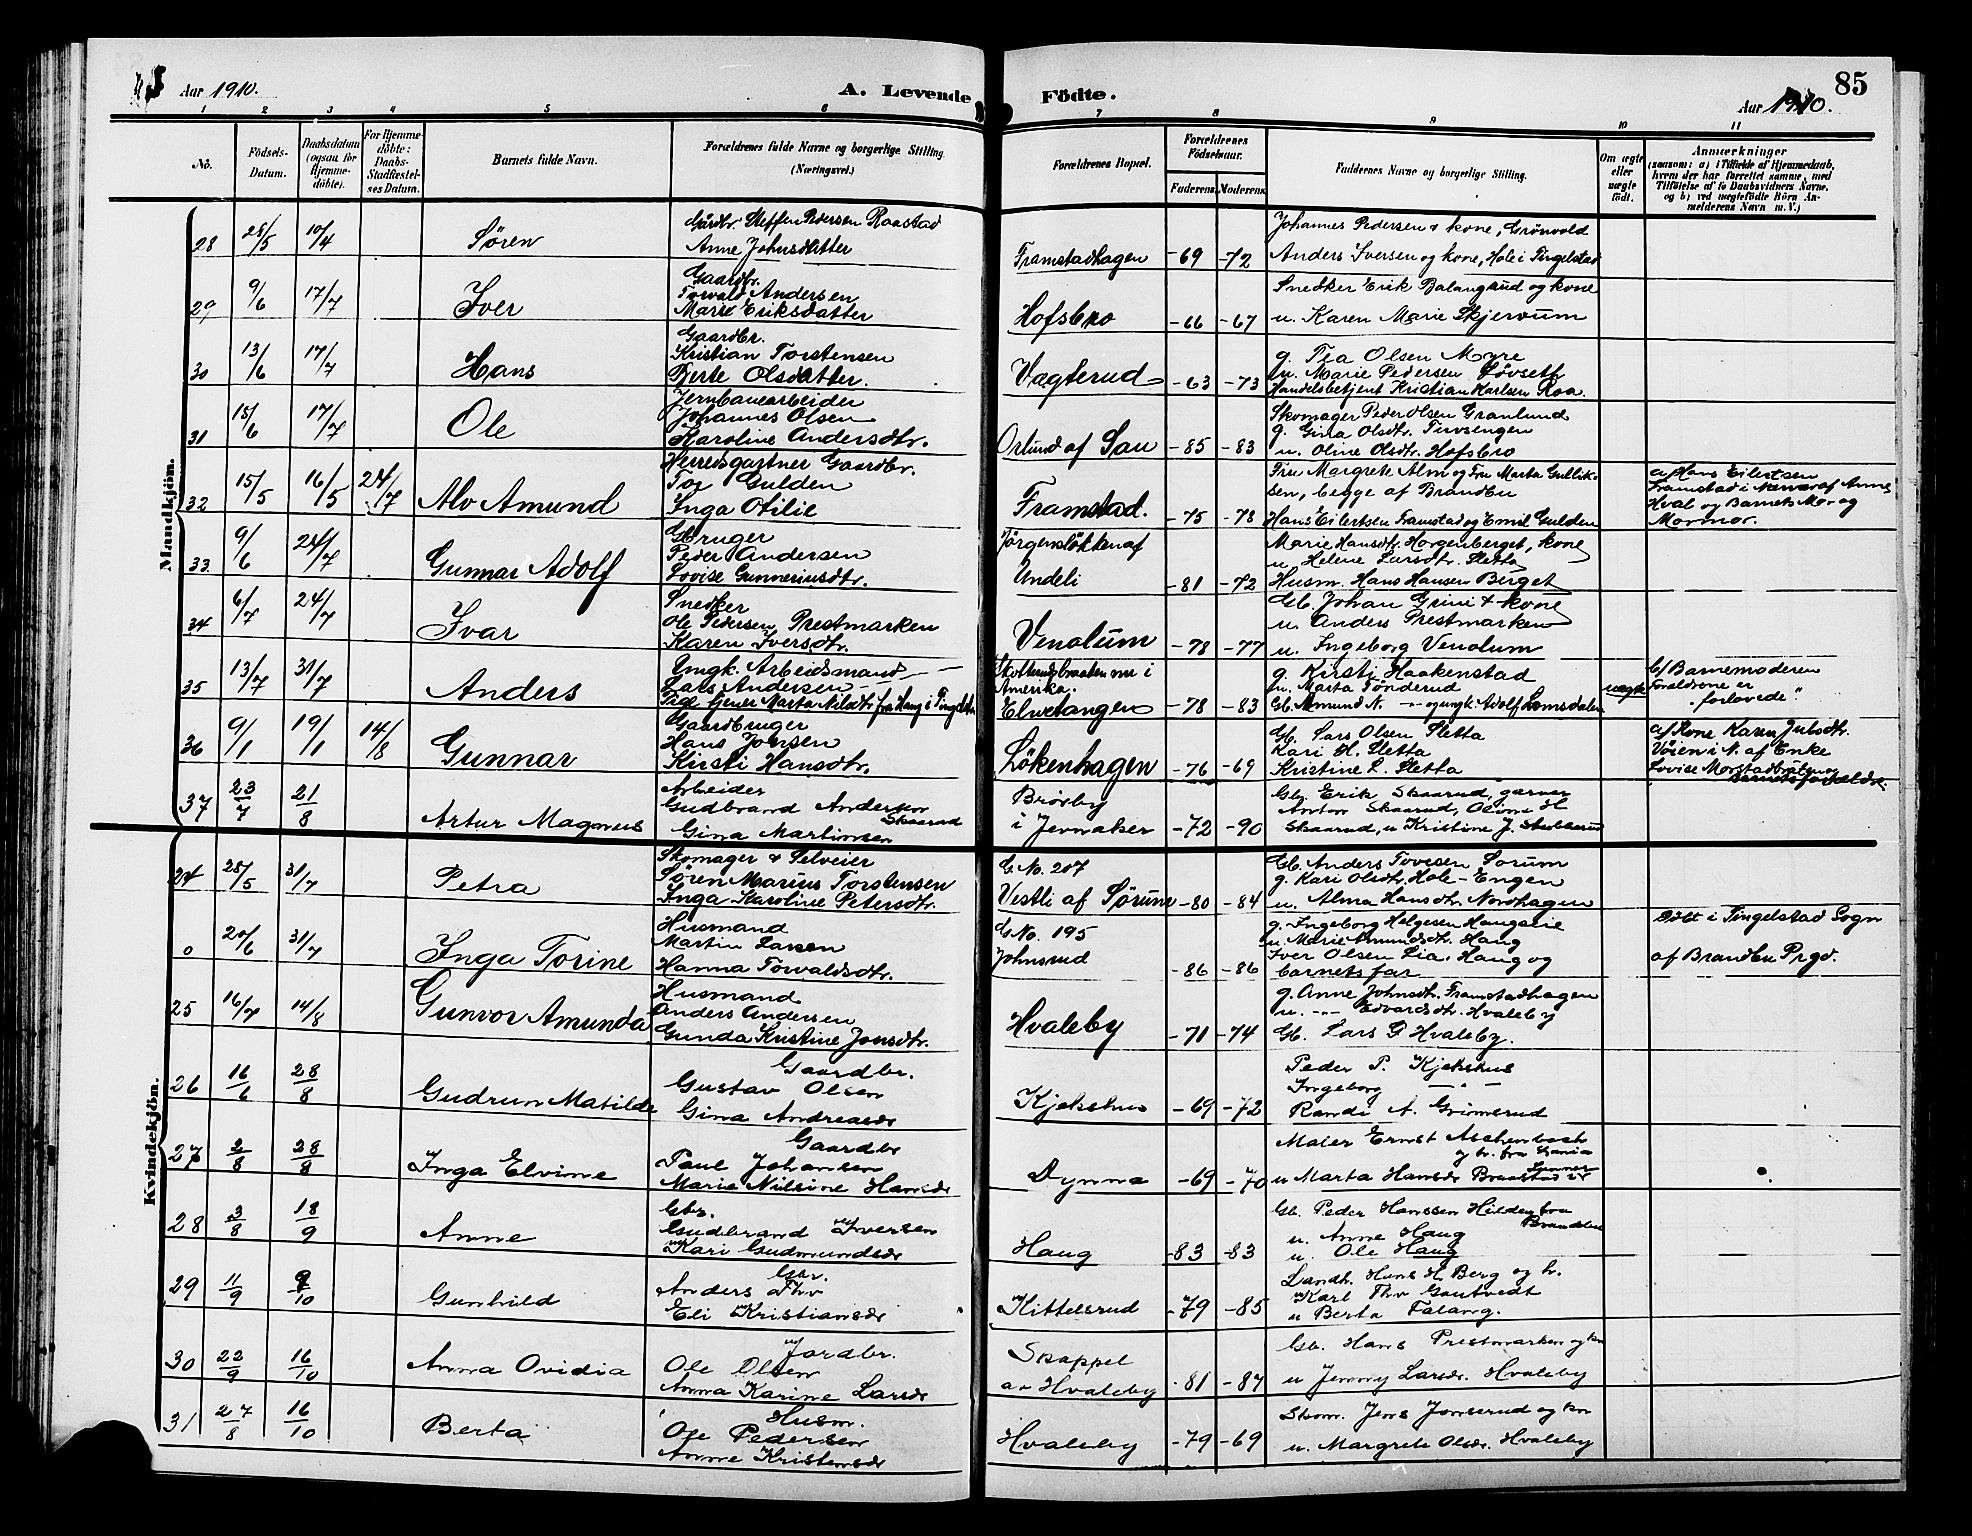 Aar 1910.
A. Levende Födte.
Aar 1910.
85
1 2 3 4 5 6 7 8 9 10 11
No.
Födsels-
Datum.
Daabsdatum
(ogsaa for
Hjemme-
döbte).
For Hjemme-
döbte:
Daabs-
Stadfæstel-
ses Datum.
Barnets fulde Navn.
Forældrenes fulde Navne og borgerlige Stilling.
(Næringsvei.)
Forældrenes Bopæl.
Forældrenes
Födselsaar.
Faderens. Moderens.
Faddernes Navne og borgerlige Stilling.
Om ægte
eller
uægte
födt.
Anmærkninger
(saasom: a) i Tilfælde af Hjemmedaab,
hvem der har forrettet samme, med
Tilföielse af to Daabsvidners Navne,
og b) ved uægtefödte Börn An-
melderens Navn m. V.)
Mandkjön.
28 28/5 10/4 Søren
Gårdbr. Steffen Pedersen Raastad
Anne Johnsdatter
Framstadhagen -69 -72
Johannes Pedersen & kone, Grönvold
Anders Iversen og kone, Hole i Tingelstad
29 9/6 17/7 Iver
Gaardbr.
Torvald Andersen
Marie Eriksdatter
Hofsbro -66 -67
Snedker Erik Balangrud og kone
u. Karen Marie Skjervum
30 13/6 17/7 Hans
Gaardbr.
Kristian Torstensen
Berte Olsdatter.
Vagterud -63 -73
g. Tea Olsen Myre
u. Marie Pedersen Lövseth
Handelsbetjent Kristian Karlsen Roa.
31 15/6 17/7 Ole
Jernbanearbeider
Johannes Olsen
Karoline Andersdtr.
Orlund af Sau -85 -83
Skomager Peder Olsen Granlund
g. Gina Olsdtr. Tuvsengen
u. Oline Olsdtr. Hofsbro
32 15/5 16/5 24/7 Alv Amund
Herredsgartner Gaardbr.
Tor Gulden
Inga Otilie
Framstad. -75 -78
Fru Margrete Alm og Fru Marta Gullik-
sen, begge af Brandbu
Hans Eilertsen Framstad og Emil Gulden
af Hans Eilertsen
Framstad i Nærvær af Anne
Hval og Barnets Mor og
Mormor.
33 9/6 24/7 Gunnar Adolf
Gbruger
Peder Andersen
Lovise Gunneriusdtr.
Jørgensløkken af
Undeli -81 -72
Marie Hansdtr. Horgenberget, kone
u. Helene Larsdtr. Sletta
Husm. Hans Hansen Berget
34 6/7 24/7 Ivar
Snedker
Ole Pedersen Prestmarken
Karen Iversdtr.
Venolum -78 -77
Gb. Johan Grini & kone
u. Anders Prestmarken
u. Ingeborg Venolum
35 13/7 31/7 Anders
Ungk. Arbeidsmand
Lars Andersen
Pige Gjener Marta Nilsdtr. fra Haug i Tingelstad
Skotterudbraaten nu i
Amerika.
Elvetangen -78 -83
g. Kirsti Haakenstad
u. Marta Tönderud
Gb. Amund N. og ungk. Adolf Lomsdalen
uægte
b/ Barnemoderen
Foraldrene er
"forlovede"
36 9/1 19/1 14/8 Gunnar
Gaardbruger
Hans Jonsen
Kirsti Hansdtr.
Løkenhagen -76 -69
Gb. Lars Olsen Sletta
Kari H. Sletta
Kristine L. Sletta
af Kone Karen Julsdtr.
Vøien i N. af Enke
Lovise Morstadbråten og
Barnets forældre
37 23/7 21/8 Artur Magnus
Arbeider
Gudbrand Anderson
Skaarud
Gina Martinsen
Brørby
i Jevnaker -72 -90
Gb. Erik Skaarud, garver
Anton Skaarud, Oline H
Skaarud, u Kristine J. Stubberud
Kvindekjön.
24 28/5 31/7 Petra
Skomager & Selveier
Søren Marius Torstensen
Inga Karoline Petersdtr.
G. No. 207
Vestli af Sørum -80 -84
Gb. Anders Tovesen Sorum
g. Kari Olsdtr. Hole-Engen
u. Alma Hansdtr. Nordhagen
0 20/6 31/7 Inga Torine
Husmand
Martin Larsen
Hanna Torvaldsdtr.
G No. 195
Johnsrud -86 -86
g. Ingeborg Helgesen Haugseie
u. Marie Amundsdtr. Haug
Iver Olsen Lia, Haug og
barnets far
Døbt i Tingelstad Sogn
af Brandbu Prgd.
25 16/7 14/8 Gunvor Amunda
Husmand
Anders Andersen
Gunda Kristine Jonsdtr.
Hvaleby -71 -74
g. Anne Johnsdtr. Framstadhagen
u. -"- Edvardsdtr. Hvaleby
Gb. Lars G Hvaleby.
26 16/6 28/8 Gudrun Matilde
Gaardbr.
Gustav Olsen
Gina Andreasdr
Kjekshus -69 -72
Peder P. Kjekshus
Ingeborg -"-
Randi A. Grimsrud
27 2/8 28/8 Inga Elvine
Gaardbr
Paul Johansen
Marie Nilsine Hansdr
Dynna -69 -70
Maler Ernst Aschenbach
og h. fra Xania
u Marta Hansdr Braastad i Lunner
28 3/8 18/9 Anne
Gbr.
Gudbrand Iversen
Kari Gudmundsdr
Haug -83 -83
Gb. Peder Hanssen Hilden fra
Brandbu
u. Anne Haug
u. Ole Haug
29 11/9 9/10 Gunhild
Gbr.
Anders Thv
Eli Kristiansdr
Kittelsrud -79 -85
Landh. Hans H Berg og h.
Karl Thv Gamtvedt
u Berta Falang.
30 22/9 16/10 Anna Ovidia
Jordbr.
Ole Olsen
Anna Karine Larsdr
Skappel
av Hvaleby -81 -87
Gb. Hans Prestmarken og kn
u Jenny Larsdr. Hvaleby
31 27/8 16/10 Berta
Husm.
Ole Pedersen
Anne Kristensdr
Hvaleby -79 -69
Skom. Jens Jonserud og kn
u. Margrete Olsdr. Hvaleby